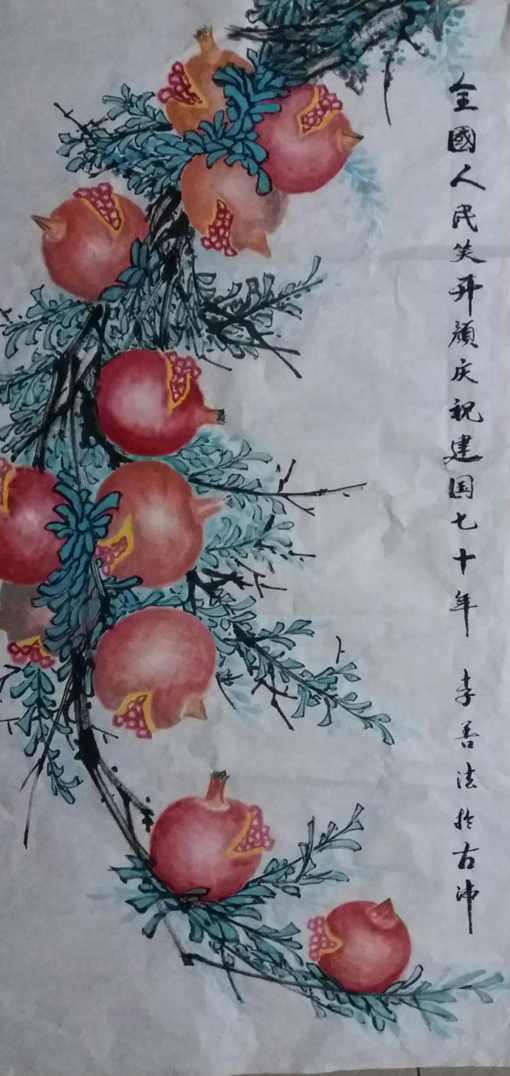 全國人民笑开颜庆祝建国七十年 李善法於古沛